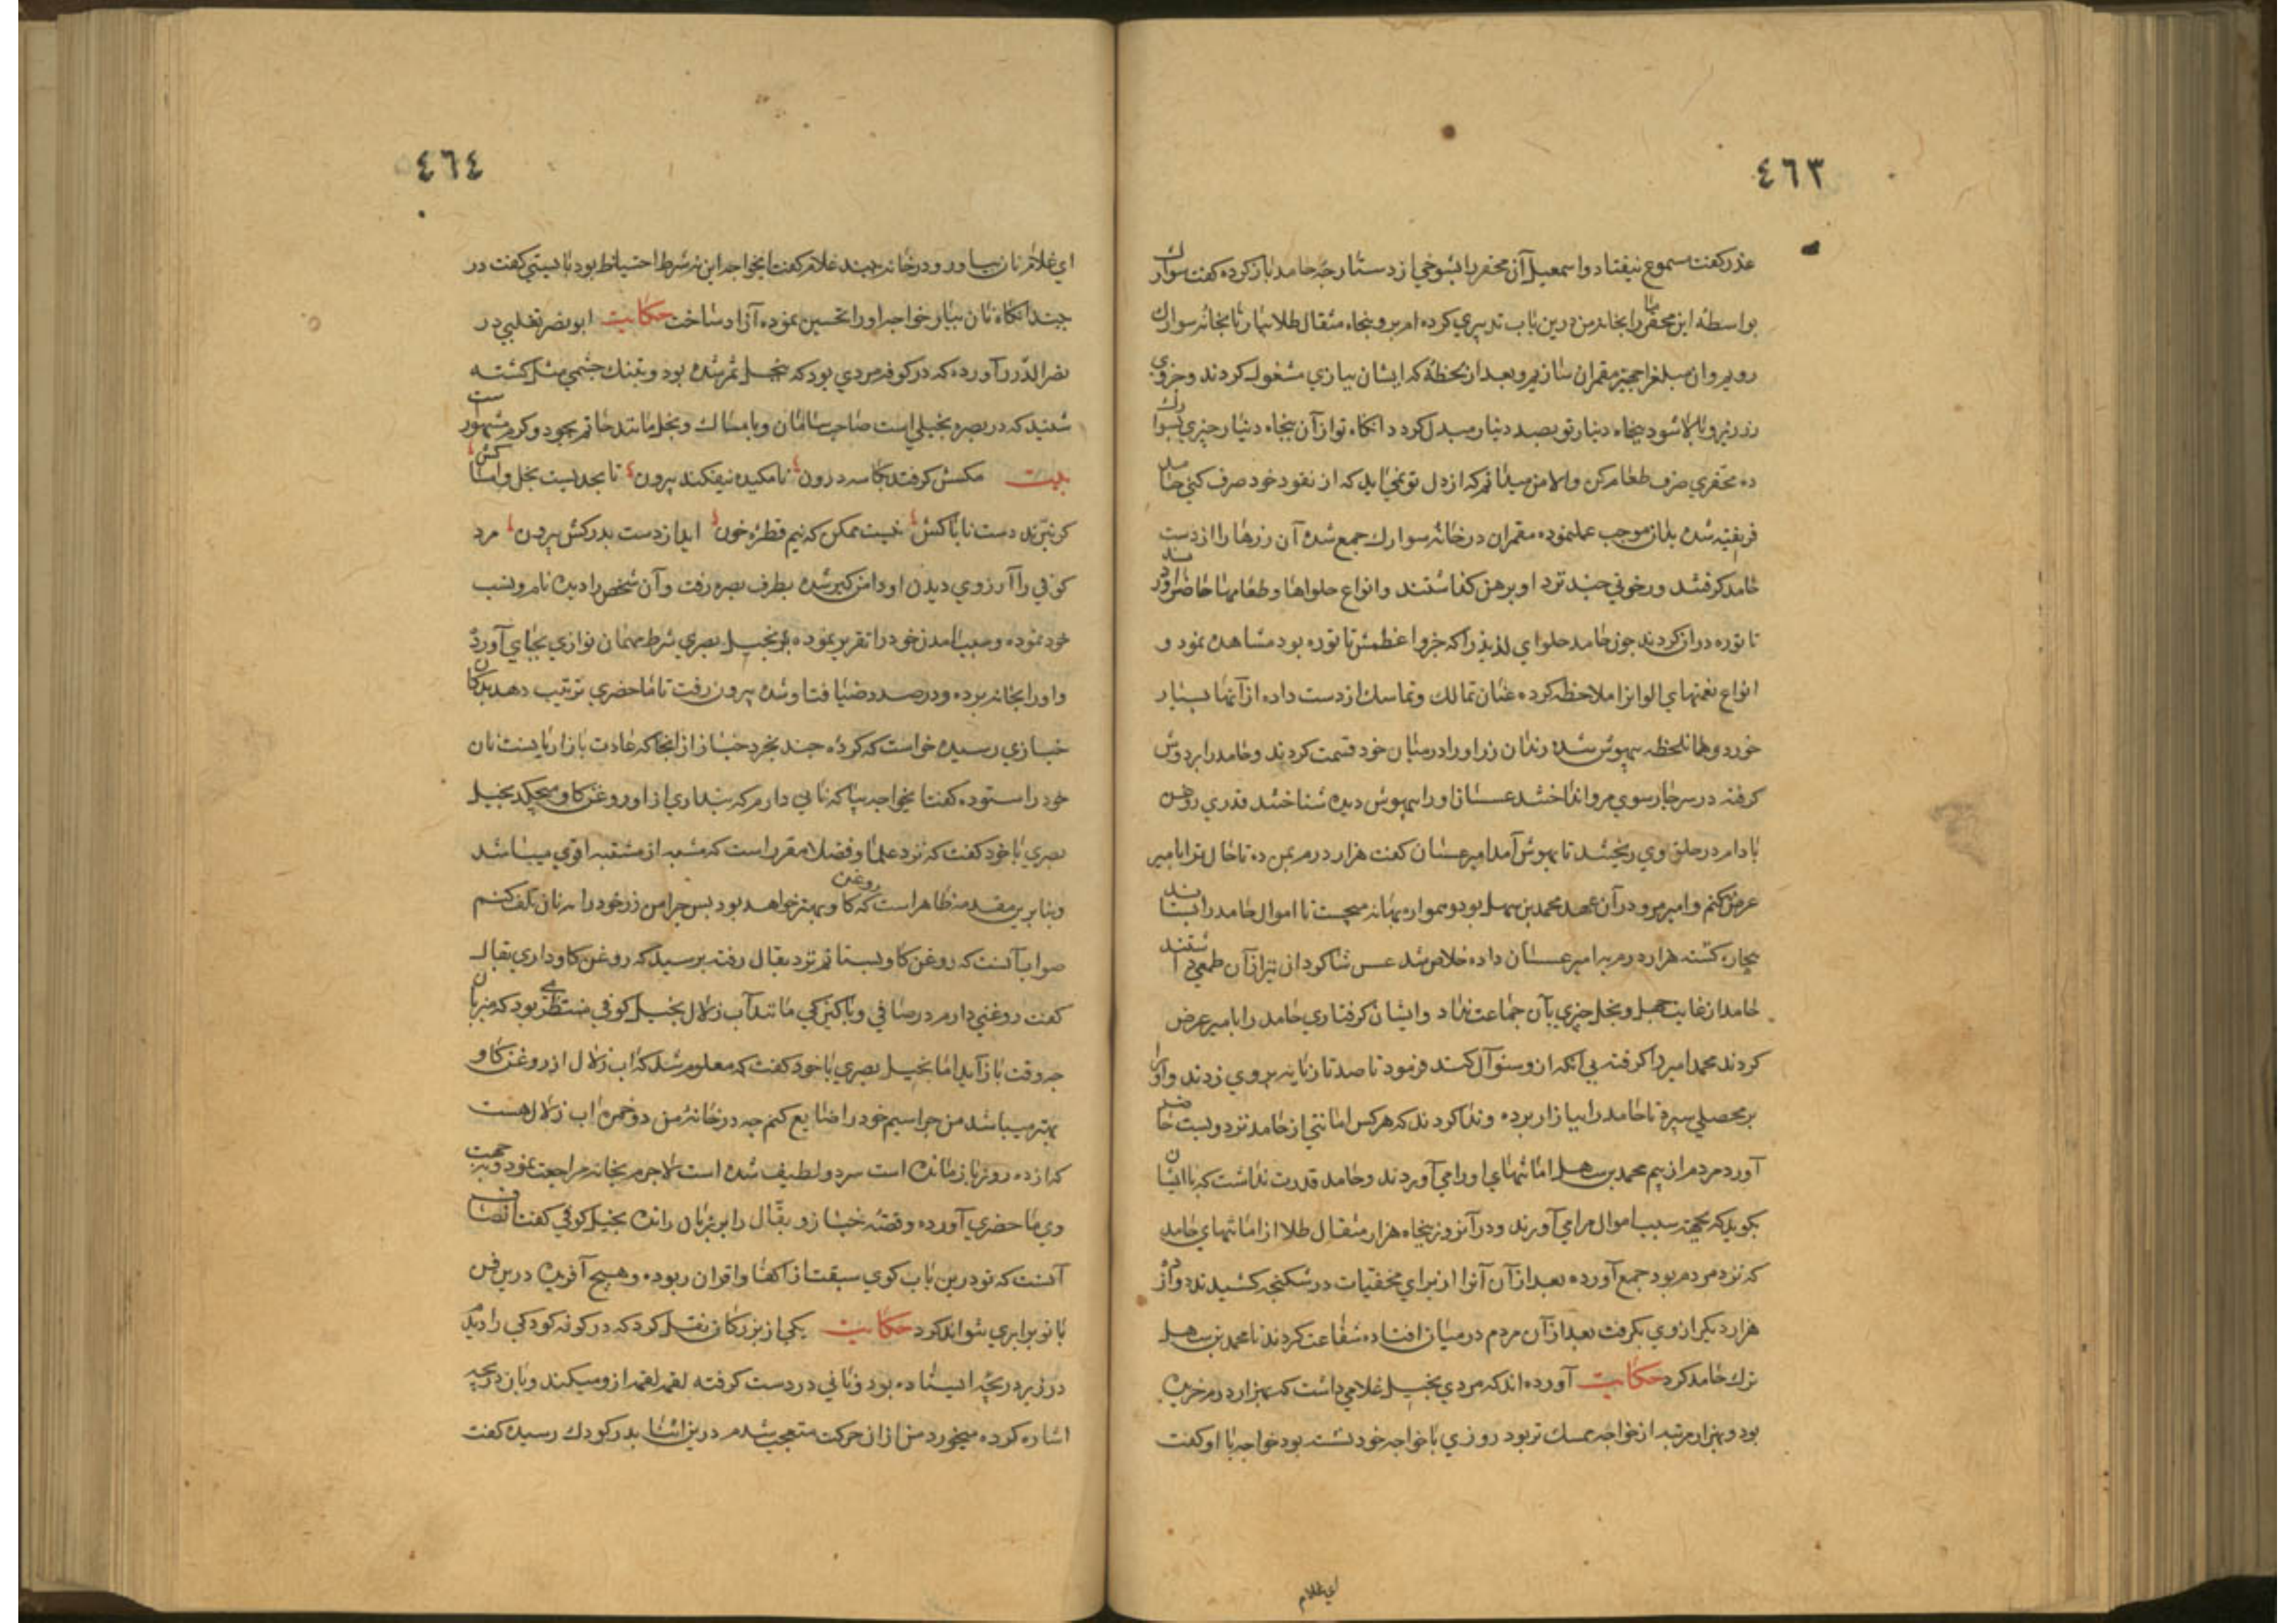 ٤٦٣
عذر گفت مسموع نیفتاد و اسمعیل آن محقر را بشوخی از دستار چۀ حامد باز کرده گفت سوارک
بواسطه این محقر ما را بخانه من درین باب تدبیری کرده ام برو پنجاه مثقال طلا بیار تا بخانه سوارک
رویم و آن مبلغ را بحیز مقمران سازیم و بعد از لحظۀ که ایشان ببازی مشغول کردند و جزوی
زر زیر و بالا شود پنجاه دینار تو بصد دینار مبدل کردد آنکاه تو از آن پنجاه دینار چیزی بسوارک
ده محقری صرف طعام کن والا من میدانم که از دل تو نمی آید که از نقود خود صرف کنی حامد
فریفته شده بدان موجب عمل نموده مقمران در خانۀ سوارک جمع شده آن زرها را از دست
حامد گرفتند و رخوتی چند نزد او برهن گذاشتند و انواع حلواها و طعامها حاضر آوردند
تا توره دراز کردند چون حامد حلوای لذیذ را که جزو اعظمش تاتوره بود مشاهده نمود و
انواع نعمتهای الوان را ملاحظه کرده عنان تمالک و تماسک از دست داده از آنها بسیار
خورد و همان لحظه بیهوش شده رندان زر او را در میان خود قسمت کردند و حامد را بر دوش
گرفته در سر چارسوی مرو انداختند عسسان او را بیهوش دیده شناختند قدری روغن
بادام در حلق وی ریختند تا بهوش آمد امیر عسسان گفت هزار درم بمن ده تا حال ترا بامیر
عرض نکنم و امیر مرو در آن عهد محمد بن سهل بود و همواره بهانه میجست تا اموال حامد را بستاند
بیچاره گشته هزار درم به امیر عسسان داده خلاص شد عسس شاکردان نیز از آن طمعی داشتند
حامد از غایت جهل و بخل چیزی بآن جماعت نداد و ایشان گرفتاری حامد را بامیر عرض
کردند محمد امیر را گرفته بی آنکه از و سئوال کند فرمود تا صد تازیانه بر وی زدند و او را
بر محصلی سپرد تا حامد را ببازار برده و ندا کردند که هر کس امانتی از حامد نزد ویست حاضر
آورد مردم از بیم محمد بن سهل امانتهای او را می آوردند و حامد قدرت نداشت که با ایشان
بکوید که بچه سبب اموال مرا می آورند و در آنروز پنجاه هزار مثقال طلا از امانتهای حامد
که نزد مردم بود جمع آورده بعد از آن آنرا از برای مخفیات در شکنجه کشیدند و دوازده
هزار دیکر از وی بگرفت بعد از آن مردم در میان افتاده شفاعت کردند تا محمد بن سهل
ترک حامد کرد حکایت آورده اند که مردی بخیل غلامی داشت که بهزار درم خریده
بود و بهزار مرتبه از خواجه ممسک تر بود روزی با خواجه خود نشسته بود خواجه با او گفت
ای غلام
٤٦٤
ای غلام نان بیاور و در خانه ببند غلام گفت ایخواجه این نه شرط احتیاط بود بایستی گفت در
ببند آنکاه نان بیار خواجه او را تحسین نموده آزاد ساخت حکایت ابو نصر ثعلبی در
نثر الدرر آورده که در کوفه مردی بود که ببخل ثمر شده بود و بتنک چشمی مثل گشته
شنید که در بصره بخیلی است صاحب سامان و بامساک و بخل مانند حاتم بجود و کرم مشهور است
بیت مکسش گرفتد بکاسه درون نامکیده نیفکند بیرون تا بحدیست بخل و امساکش
کر ببّرند دست ناپاکش نیست ممکن که نیم قطرۀ خون اید از دست بدرکش بیرون مرد
کوفی را آرزوی دیدن او دامن گیر شده بطرف بصره رفت و آن شخص را دیده نام و نسب
خود نموده و سبب آمدن خود را تقریر نموده بخیل بصری شرط مهمان نوازی بجای آورده
و او را بخانه برده و در صدد ضیافت او شده بیرون رفت تا ما حضری ترتیب دهد بدکان
خبازی رسیده خواست که گردۀ چند بخرد خباز از انجا که عادت بازاریانست نان
خود را ستوده گفت ایخواجه بیا که نانی دارم که پنداری از او روغن گاو میچکد بخیل
بصری با خود گفت که نزد علما و فضلا مقرر است که مشبه از مشتبه اقوی میباشد
و بنابرین مقدمه ظاهر است که روغن گاو بهتر خواهد بود پس چرا من زر خود را به نان تلف کنم
صواب آنست که روغن گاو بستانم نزد بقال رفته پرسید که روغن گاو داری بقال
گفت روغنی دارم در صافی و پاکیزکی مانند آب زلال بخیل کوفی منتظر بود که میزبان
چه وقت باز آید اما بخیل بصری با خود گفت که معلوم شد که اب زلال از روغن گاو
بهتر میباشد من چرا سیم خود را ضایع کنم چه در خانۀ من دو خمره اب زلال هست
که از ده روز باز مانده است سرد و لطیف شده است لاجرم بخانه مراجعت نمود و بجهت
وی ما حضری آورده و قصّه خباز و بقّال را بر زبان رانده بخیل کوفی گفت انصاف
آنست که تو درین باب کوی سبقت از اکفا و اقران ربوده و هیچ آفریده درین فن
با تو برابری نتواند کرد حکایت یکی از بزرکان نقل کرد که در کوفه کودکی را دیدم
در زیر دریچه ایستاده بود و نانی در دست گرفته لقمه لقمه از و میکند و بان دریچه
اشاره کرده میخورد من از ان حرکت متعجب شدم درین اثنا پدر کودک رسیده گفت